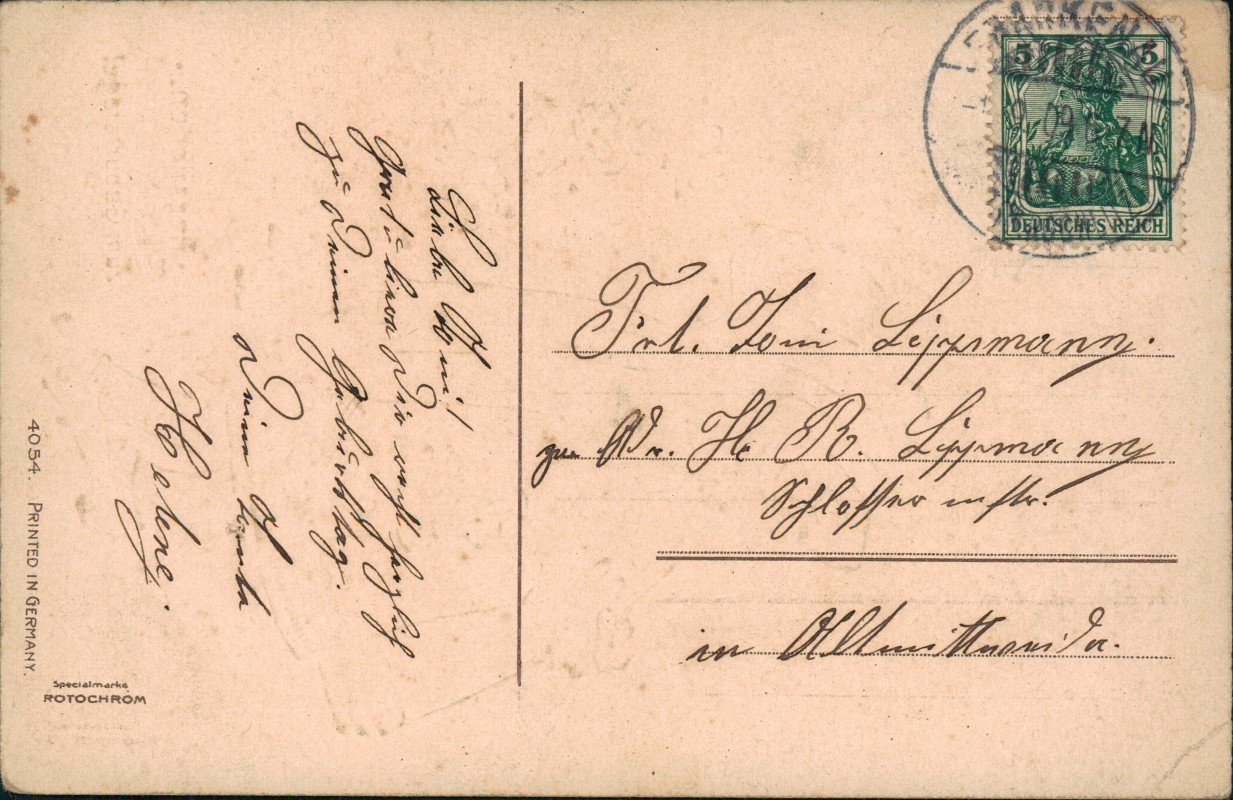 Liebe Toni!
Gratuliere Dir recht herzlich
zu Deinem Geburtstag.
Deine Tante
Helene.
Frl. Toni Lippmann.
H. R. Lippmann
Schlossermstr.
in Altmittweida.
5 5
DEUTSCHES REICH
FRANKEN
09
7N
4054. PRINTED IN GERMANY.
Specialmarke
ROTOCHROM